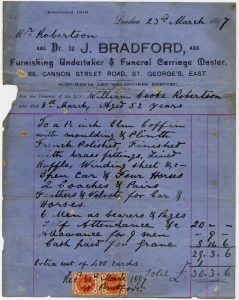 ESTABLISHED 1819.
London 23rd March 1897
Mrs Robertson
Dr. to J. BRADFORD,
Furnishing Undertaker & Funeral Carriage Master,
85, CANNON STREET ROAD, ST. GEORGE'S, EAST.
MONUMENTS AND HEADSTONES ERECTED.
For the Funeral of the late William Cooke Robertson
who died 9th March, Aged 52 years
To a 6 inch Elm Coffin
with moulding & Plinth
French Polished, Finished
with brass fittings, Lined
Ruffle, Winding sheet &c
Open Car & Four Horses
2 Coaches & Pairs
Feathers & Velvets for Car &
Horses.
6 Men as bearers & Pages
Self Attendance &c 20 - -
Allowance for men 8 -
Cash paid for grave 8 14 6
29 3 6
Extra cost of 400 cards
Total £ 30 3 6